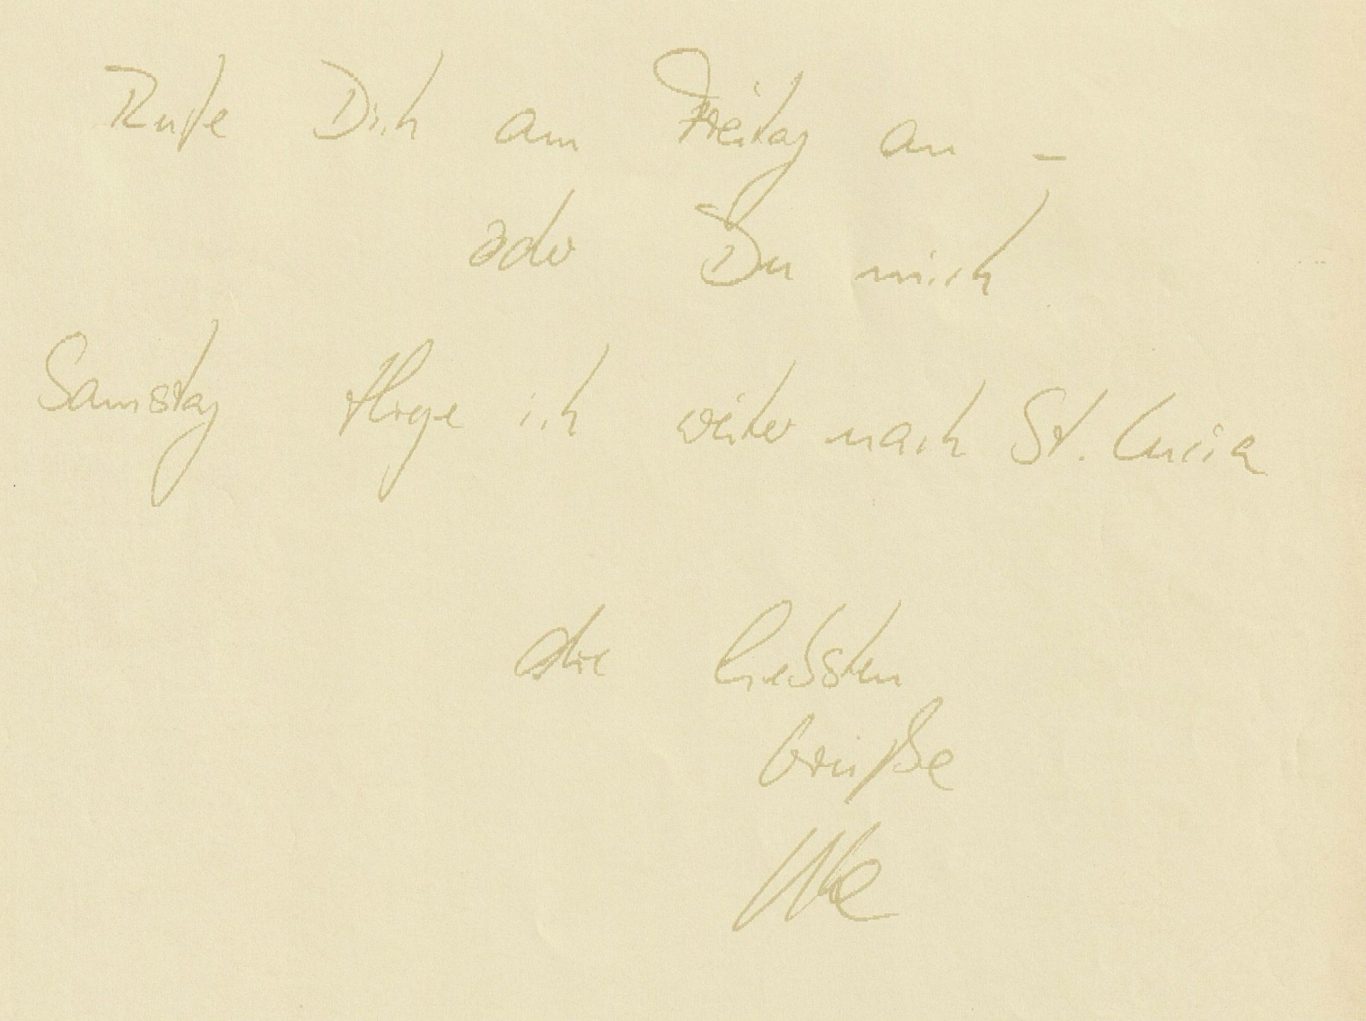 Rufe Dich am Freitag an –
oder Du mich
Samstag fliege ich weiter nach St. Lucia
die liebsten
Grüße